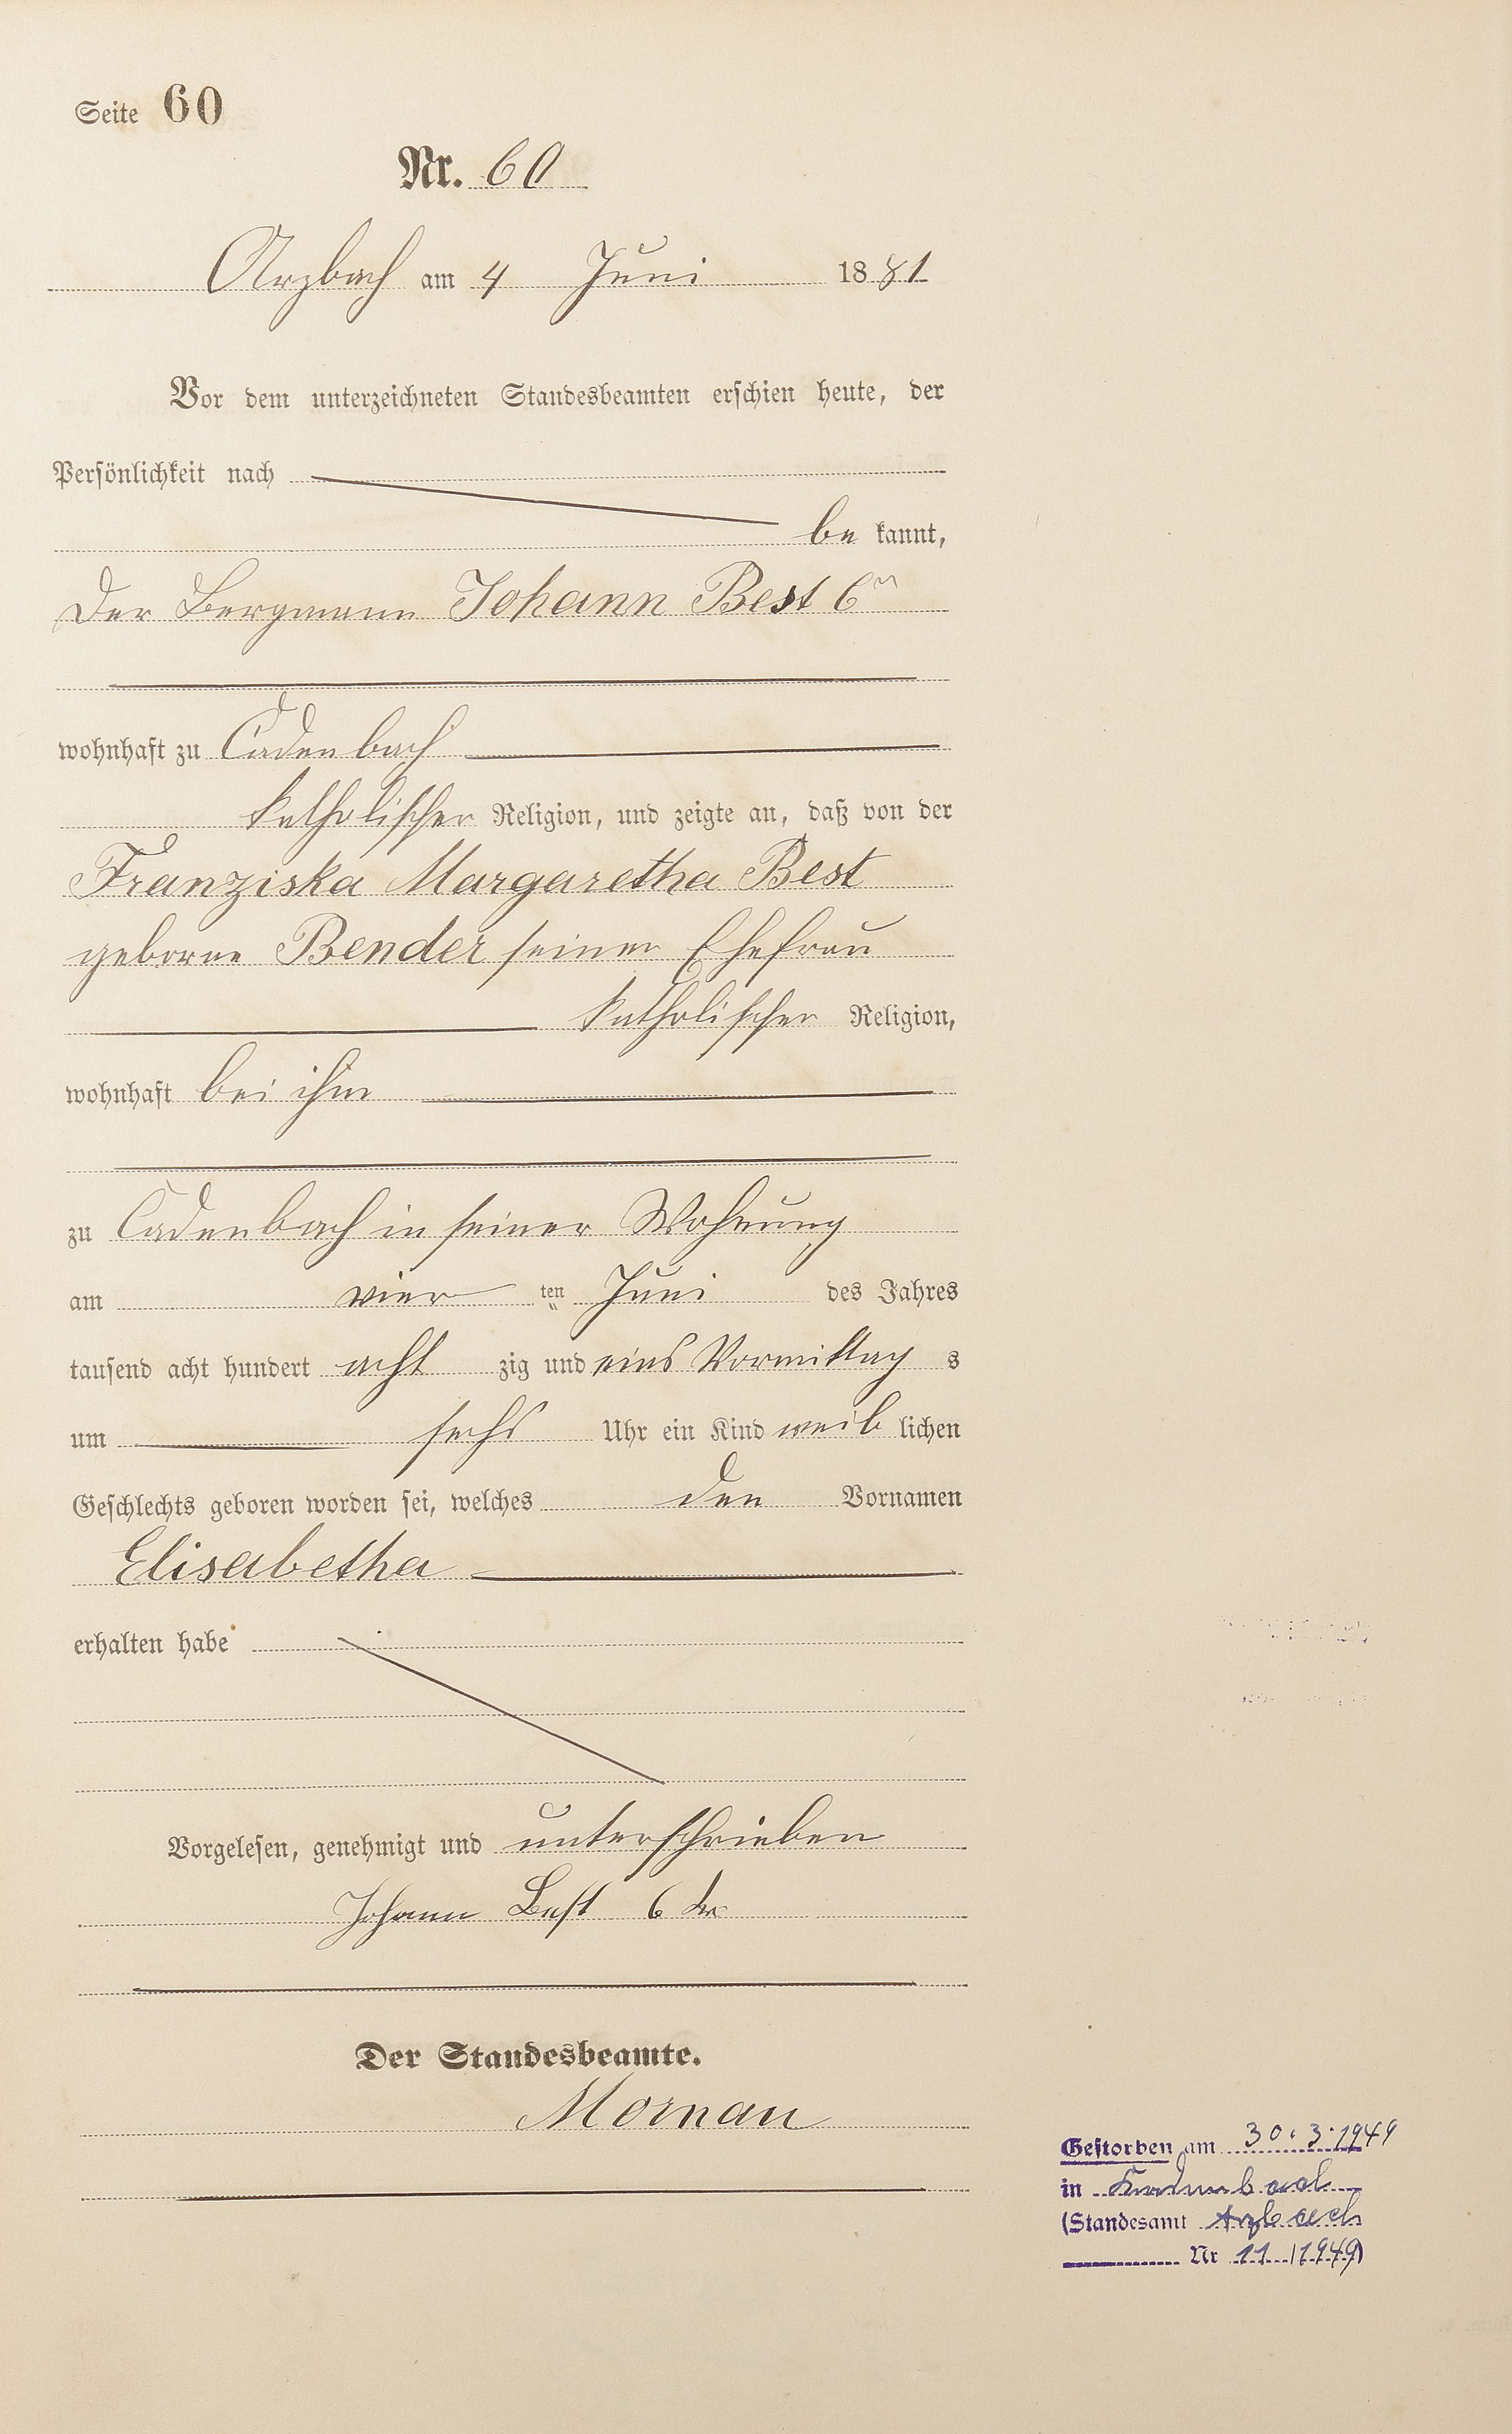 Seite 60
Nr. 60
Arzbach am 4 Juni 1881
Vor dem unterzeichneten Standesbeamten erschien heute, der
Persönlichkeit nach
be kannt,
der Bergmann Johann Best 6r
wohnhaft zu Cadenbach
katholischer Religion, und zeigte an, daß von der
Franziska Margaretha Best
geborne Bender seiner Ehefrau
katholischer Religion,
wohnhaft bei ihm
zu Cadenbach in seiner Wohnung
am vier ten Juni des Jahres
tausend acht hundert acht zig und eins Vormittag s
um sechs Uhr ein Kind weib lichen
Geschlechts geboren worden sei, welches den Vornamen
Elisabetha
erhalten habe
Vorgelesen, genehmigt und unterschrieben
Johann Best 6 der
Der Standesbeamte.
Mornau
Gestorben am 30.3.1949
in Kadenbach
(Standesamt Arzbach
Nr 11 /1949)